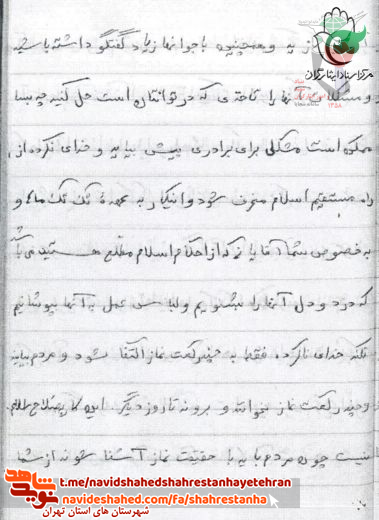 و همچنین با جوانها زیاد گفتگو داشته باشید
و مشکلات آنها را تا حدی که در توانتان است حل کنید چه بسا
ممکن است مشکلی برای برادری پیش بیاید و خدای نکرده از
راه مستقیم اسلام منحرف شود و اینکار به عهده تک تک ماها و
به خصوص شما آقایانی که از احکام اسلام مطلع هستید می باشد
که درد و دل آنها را بشنویم و لباس عمل به آنها بپوشانیم
نکند خدای ناکرده فقط به چند رکعت نماز اکتفا شود و مردم بیایند
و چند رکعت نماز بخوانند و بروند تا روز دیگر این کار به صلاح اسلام
نیست چون مردم باید با حقیقت نماز آشنا شوند از شما
مرکز اسناد ایثارگران
نوید شاهد
t.me/navidshahedshahrestanhayetehran
navideshahed.com/fa/shahrestanha
شهرستان های استان تهران